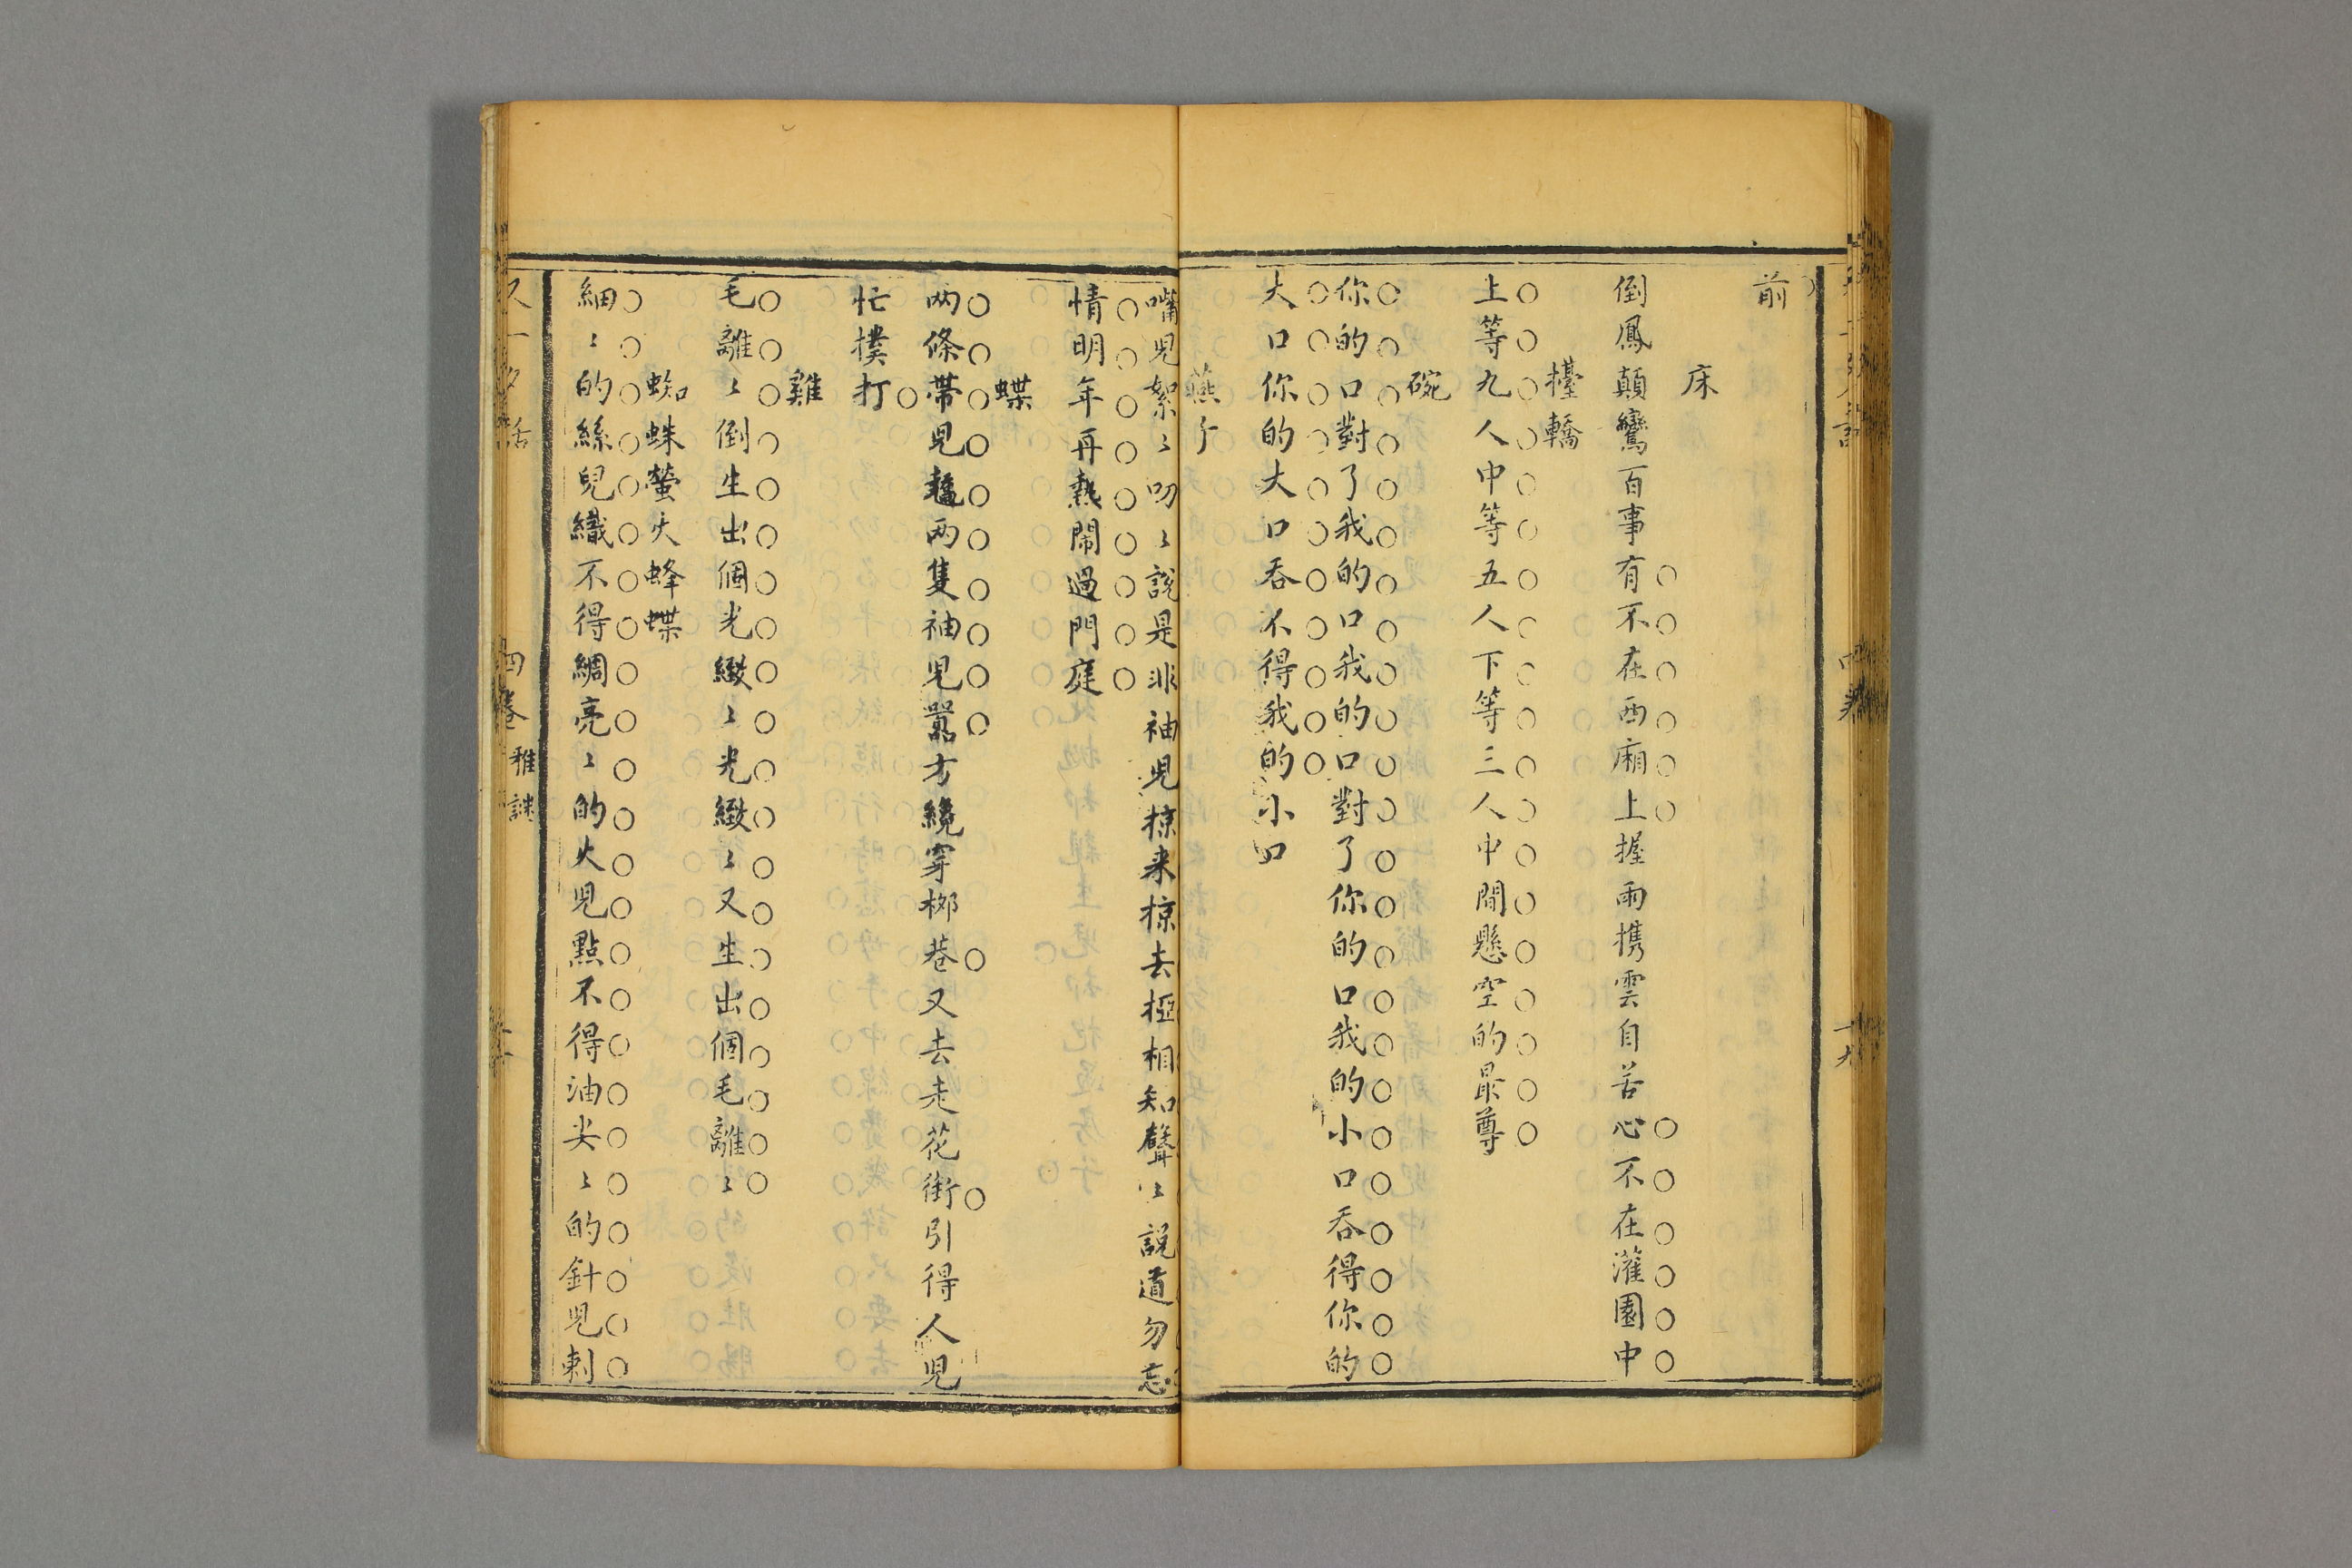 前
床
倒鳳顛鸞百事有不在西廂上握雨携雲自苦心不在灌園中
擡轎
上等九人中等五人下等三人中間懸空的最尊
碗
你的口對了我的口我的口對了你的口我的小口吞得你的
大口你的大口吞不得我的小口
燕子
嘴児絮〻叨〻說是非袖児掠来掠去極相知聲〻說道勿忘
情明年再熱鬧過門庭
蝶
两條帶児飄两隻袖児嚣方纔穿栁巷又去走花街引得人児
忙撲打
雞
毛離〻倒生出個光緻〻光緻〻又生出個毛離〻
蜘蛛螢火蜂蝶
細〻的絲兒織不得綢亮〻的火児點不得油尖〻的針児刺
又一夕話 四卷 雅謎